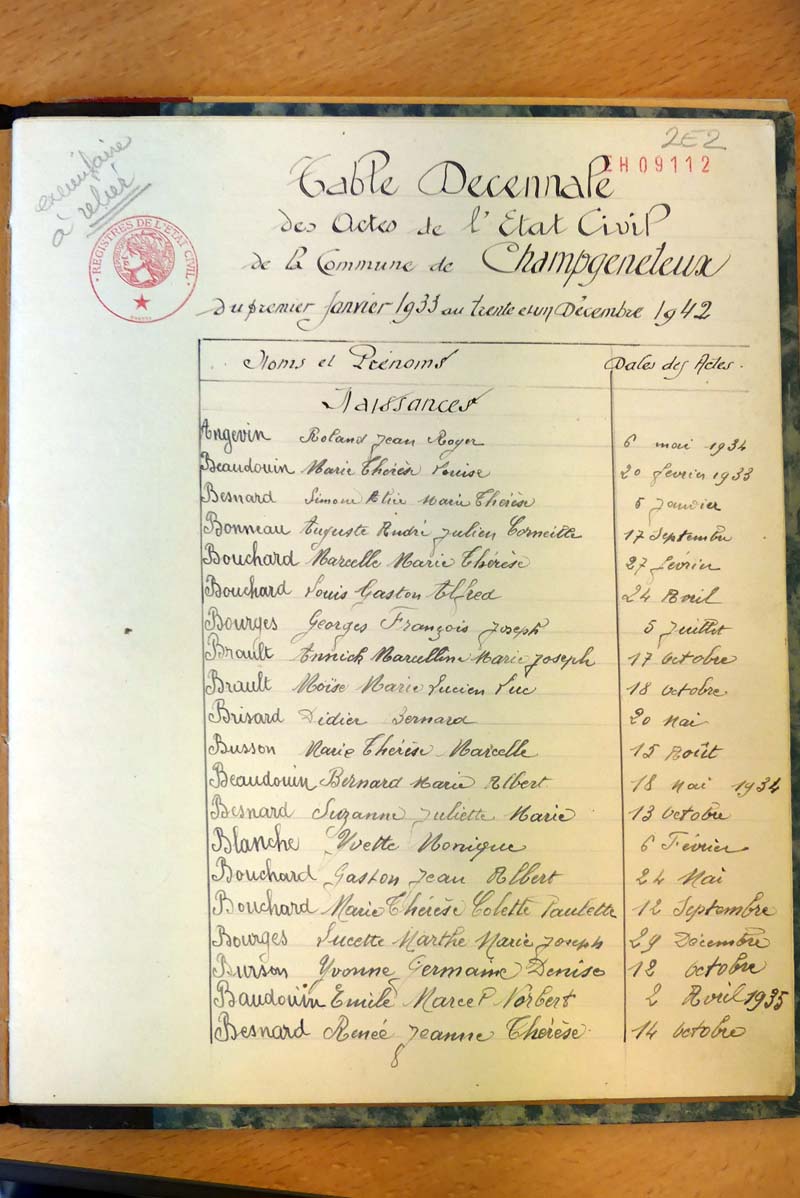 2E2
EH09112
exemplaire
à relier
REGISTRES DE L'ETAT CIVIL
Table Decennale
des Actes de l'Etat Civil
de la Commune de Champgeneteux
du premier Janvier 1933 au trente et un Décembre 1942
Noms et Prénoms Dates des Actes.
Naissances
Angevin Roland Jean Roger 6 mai 1934
Beaudouin Marie Thérèse Louise 20 février 1933
Besnard Simone Marie Thérèse 5 Janvier
Bonneau Auguste André Julien Corneille 17 Septembre
Bouchard Marcelle Marie Thérèse 27 février
Bouchard Louis Gaston Alfred 24 Avril
Bourges Georges François Joseph 5 Juillet
Brault Annick Marcelline Marie Joseph 17 octobre
Brault Moïse Marie Lucien Luc 18 octobre
Brisard Didier Bernard 20 Mai
Busson Marie Thérèse Marcelle 15 Août
Beaudouin Bernard Marie Albert 18 Mai 1934
Besnard Suzanne Juliette Marie 13 octobre
Blanche Yvette Monique 6 Février
Bouchard Gaston Jean Albert 24 Mai
Bouchard Marie Thérèse Colette Paulette 12 Septembre
Bourges Lucette Marthe Marie Joseph 29 Décembre
Burson Yvonne Germaine Denise 12 octobre
Baudouin Emile Marcel Norbert 2 Avril 1935
Besnard Renée Jeanne Thérèse 14 octobre